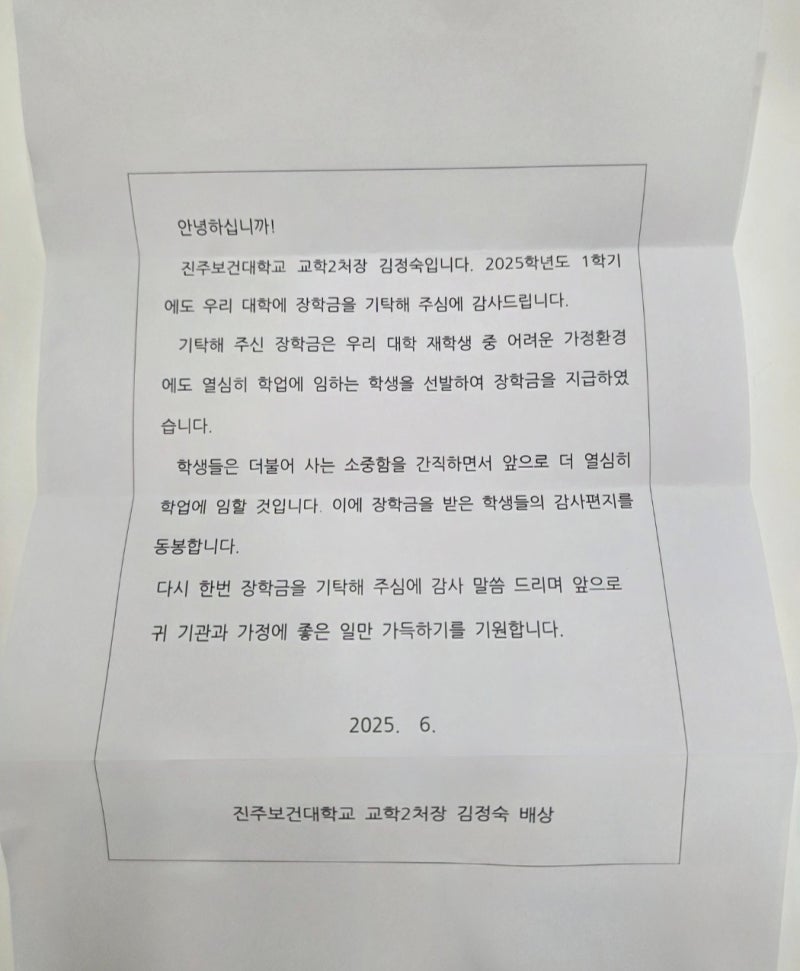 안녕하십니까!
진주보건대학교 교학2처장 김정숙입니다. 2025학년도 1학기
에도 우리 대학에 장학금을 기탁해 주심에 감사드립니다.
기탁해 주신 장학금은 우리 대학 재학생 중 어려운 가정환경
에도 열심히 학업에 임하는 학생을 선발하여 장학금을 지급하였
습니다.
학생들은 더불어 사는 소중함을 간직하면서 앞으로 더 열심히
학업에 임할 것입니다. 이에 장학금을 받은 학생들의 감사편지를
동봉합니다.
다시 한번 장학금을 기탁해 주심에 감사 말씀 드리며 앞으로
귀 기관과 가정에 좋은 일만 가득하기를 기원합니다.
2025. 6.
진주보건대학교 교학2처장 김정숙 배상